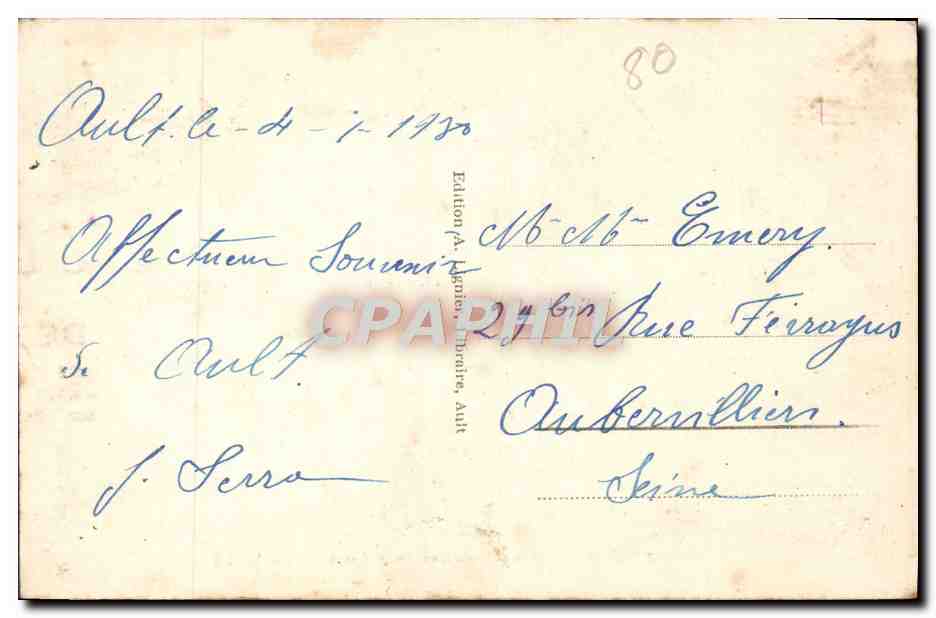 80
Ault. le - 4 - 1 - 1930
Affectueux Souvenir
de Ault
J. Serra
Edition A. Lignier, Libraire, Ault
Mr Mme Emery.
bis Rue Ferragus
Aubervilliers.
Seine
CPAPHIL